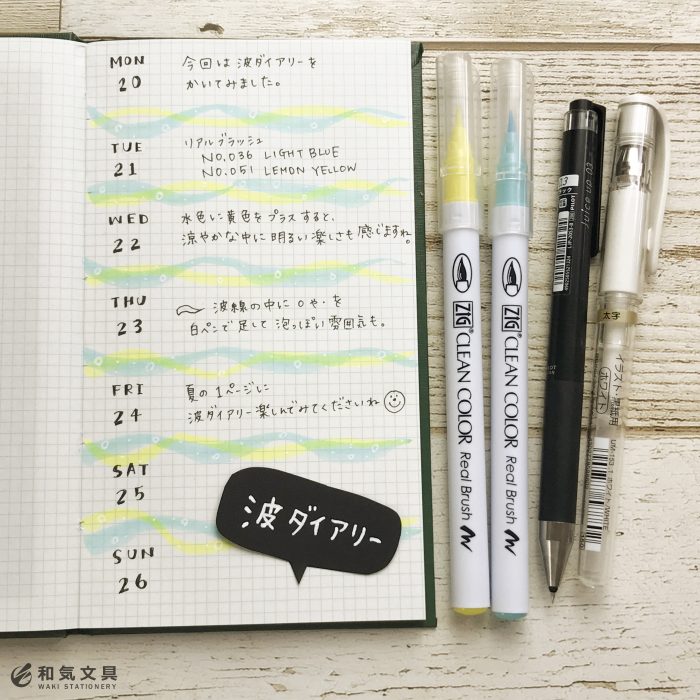 MON
20
今回は 波ダイアリーを
かいてみました。
TUE
21
リアルブラッシュ
NO.036 LIGHT BLUE
NO.051 LEMON YELLOW
WED
22
水色に黄色をプラスすると、
涼やかな中に明るい楽しさも感じますね。
THU
23
波線の中に○や・を
白ペンで足して泡っぽい雰囲気も。
FRI
24
夏の1ページに
波ダイアリー楽しんでみてくださいね
SAT
25
SUN
26
波ダイアリー
ZIG CLEAN COLOR Real Brush
ZIG CLEAN COLOR Real Brush
太字
ホワイト
和気文具
WAKI STATIONERY